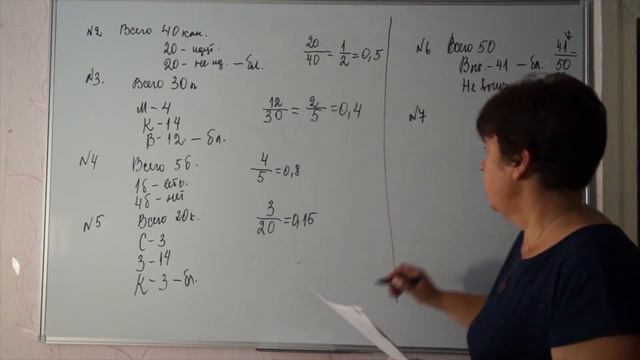 №2 Всего 40 кон.
20 - идит
20 - не ид. - бл.
20/40 = 1/2 = 0,5
№3.
Всего 30 п
М - 4
К - 14
В - 12 - бл.
12/30 = 2/5 = 0,4
№4 Всего 5 б.
1б - есть
4б - нет
4/5 = 0,8
№5 Всего 20 к.
С - 3
З - 14
К - 3 - бл.
3/20 = 0,15
№6 Всего 50
41 - бл.
Не
41/50 =
№7